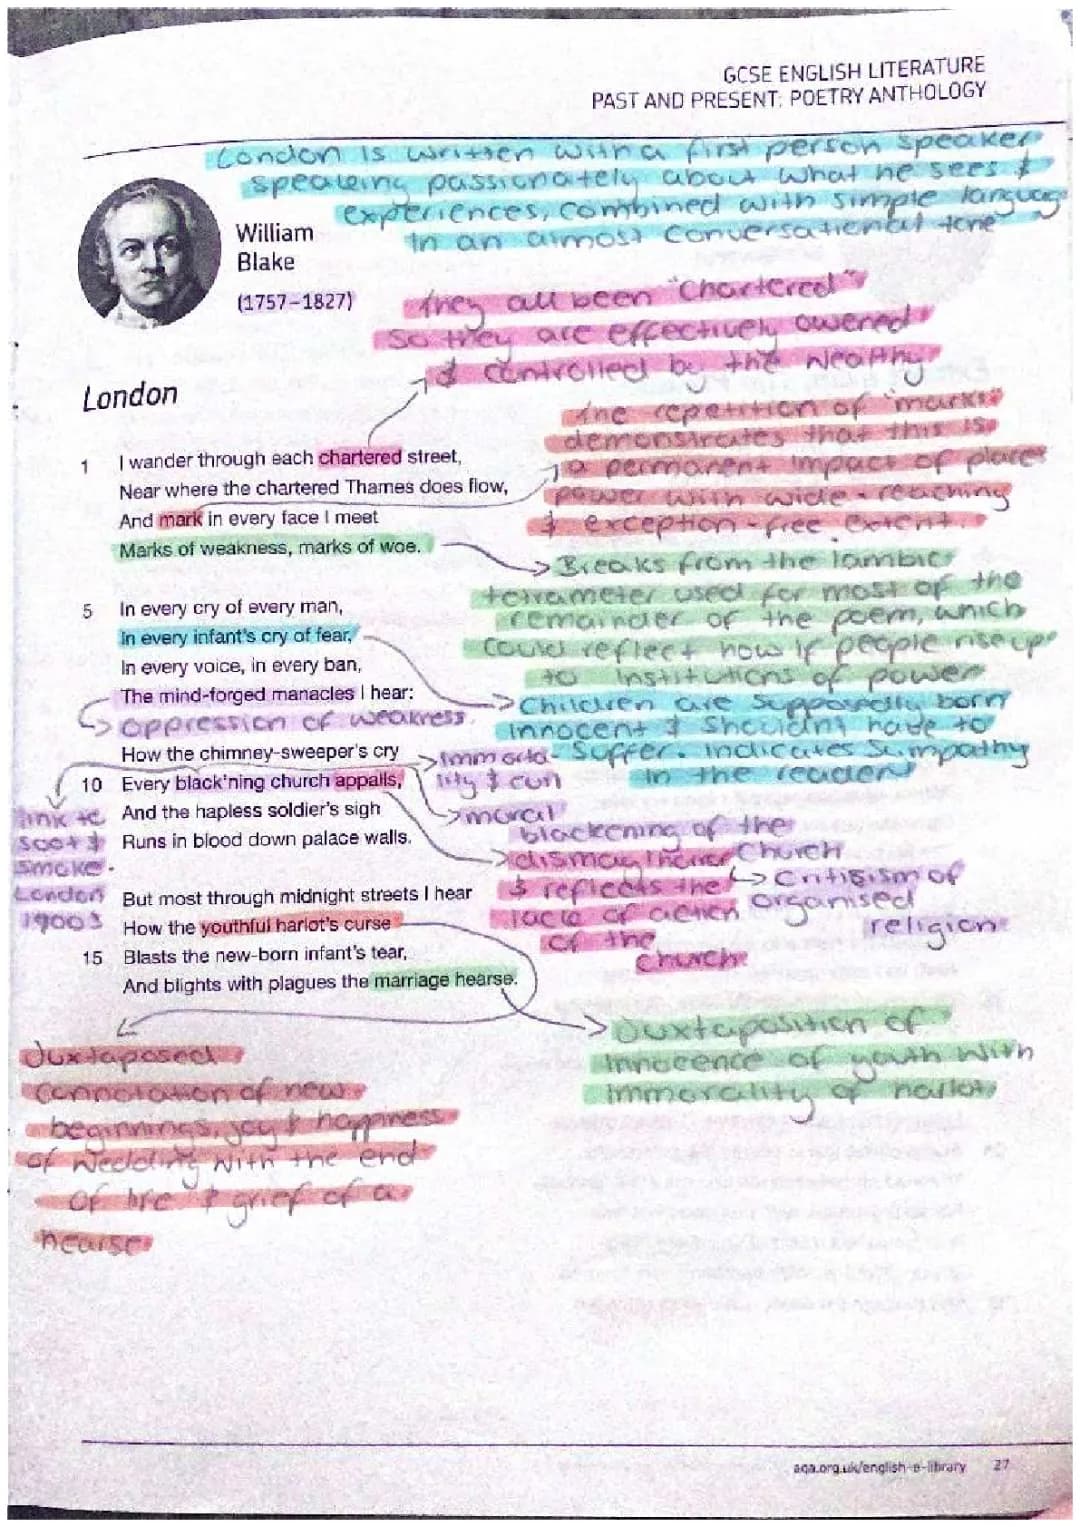 GCSE ENGLISH LITERATURE
PAST AND PRESENT: POETRY ANTHOLOGY
London is written with a first person speaker
speaking passionately about what he sees &
experiences, combined with simple language
in an almost conversational tone
William
Blake
(1757–1827)
they all been "chartered"
so they are effectively owened
& controlled by the wealthy
London
the repetition of "marks"
demonstrates that this is
a permanent impact of places
power with wide-reaching
& exception-free extent.
1 I wander through each chartered street,
Near where the chartered Thames does flow,
And mark in every face I meet
Marks of weakness, marks of woe.
Breaks from the iambic
tetrameter used for most of the
remainder of the poem, which
could reflect how if people rise up
to institutions of power
5 In every cry of every man,
In every infant's cry of fear,
In every voice, in every ban,
The mind-forged manacles I hear:
oppression of weakness
Children are supposedly born
innocent & shouldnt have to
suffer. indicates sympathy
in the reader
How the chimney-sweeper's cry
10 Every black'ning church appalls,
And the hapless soldier's sigh
Runs in blood down palace walls.
immora-
lity &
moral
blackening of the
church
criticism of
organised
religion
dismay
& reflects the
lack of action
of the
church
link to
soot &
smoke.
London
1900s
But most through midnight streets I hear
How the youthful harlot's curse
15 Blasts the new-born infant's tear,
And blights with plagues the marriage hearse.
Juxtaposition of
innocence of youth with
immorality of harlot
Juxtaposed
connotation of new
beginnings, joy & happness
of wedding with the end
of life & grief of a
hearse
aqa.org.uk/english-e-library 27